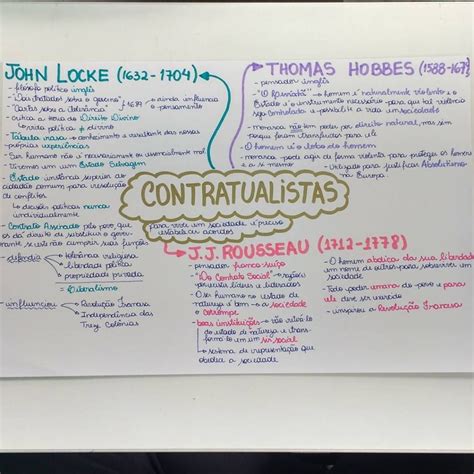 JOHN LOCKE (1632-1704)
- filósofo político inglês
- "Dois tratados sobre o governo"
- "Cartas sobre a tolerância"
1689 → ainda influencia o pensamento
- critica a teoria do Direito Divino
↳ vida política ≠ divino
- Tábula rasa → conhecimento é resultante das nossas
próprias experiências
- Ser humano não é necessariamente ou essencialmente mal
- Vivemos em um Estado Selvagem
- Estado: instância superior ao
cidadão comum para resolução
de conflitos
↳ decisões políticas nunca
individualmente
- Contrato Assinado pelo povo, que
os dá direito de substituir o governante
se este não cumprir suas funções
- defendia → tolerância religiosa
→ liberdade política
→ propriedade privada
= Liberalismo
- influenciou → Revolução Francesa
→ Independência das
Treze Colônias
THOMAS HOBBES (1588-1679)
- pensador inglês
- "O Leviatã" → homem é naturalmente violento e o
Estado é o instrumento necessário para que tal violência
seja controlada e possibilite a vida em sociedade
- monarcas não tem poder por direito natural, mas sim
porque foram transferidos para ele
- O homem é o lobo do homem
- monarca pode agir de forma violenta para proteger os homens
de si mesmo
→ Utilizado para justificar Absolutismo
na Europa
CONTRATUALISTAS
para viver em sociedade é preciso
estabelecer acordos
J.J. ROUSSEAU (1712-1778)
- pensador franco suíço
- "Do Contrato Social" →
pequisa líderes e liderados
- O ser humano no estado de
natureza é bom → a sociedade
o corrompe
- boas instituições → vão retirá-lo
do estado de natureza e trans-
formá-lo em um ser social
↳ sistema de representação que
obedeça a sociedade
- O homem abdica da sua liberdade
em nome de outras para sobreviver em
sociedade
- Todo poder emana do povo e para
ele deve ser usado
- inspirou a Revolução Francesa